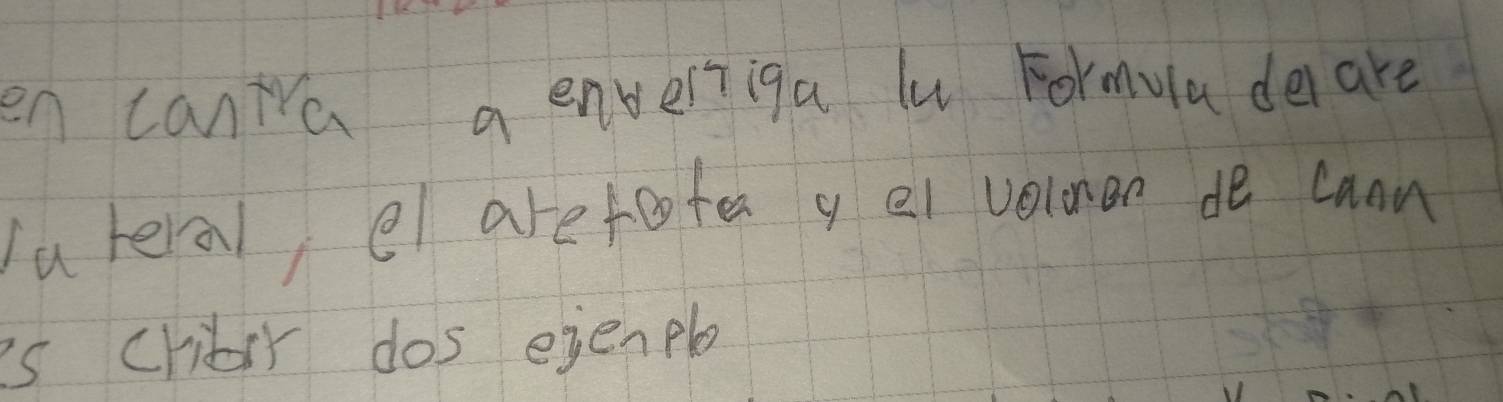 en canrra a enverTiga lu Formula del are
lateral, el aretota y el volunen de cann
es cribir dos ejenplo